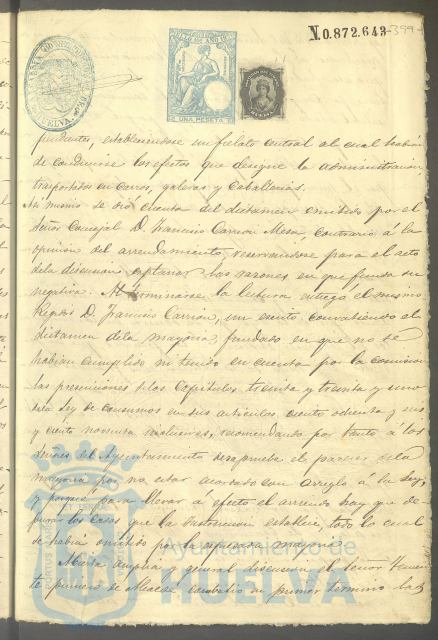 N.0.872.643
399
UNA PESETA
HUELVA
pendientes, estableciendose un fielato central al cual habrán
de conducirse los efectos que designe la administracion
trasportados en carros, galeras y caballerias.
Asi mismo se dió cuenta del dictamen emitido por el
Señor Concejal D. Francisco Carrion Mesa contrario á la
opinion del arrendamiento, reservandose para el acto
dela discusion esplanar las razones en que funda su
negativa. Al terminarse la lectura entregó el mismo
Regidor D. Francisco Carrion, un escrito combatiendo el
dictamen dela mayoria, fundado en que no se
habian cumplido ni tenido en cuenta por la comision
las prescripciones delos Capitulos treinta y treinta y uno
dela Ley de consumos en sus articulos, ciento ochenta y seis
y ciento noventa inclusives, recomendando por tanto á los
Señores del Ayuntamiento desaprueben el parecer dela
mayoria por no estar acordado con arreglo á la Ley;
y porque para llevar á efecto el arriendo hay que de-
purar los casos que la Instruccion establece, todo lo cual
se habia omitido por la espresada mayoria.
Abierta amplia y general discusion el Señor Tenien-
te primero de Alcalde combatió en primer termino las
Ayuntamiento de
HUELVA